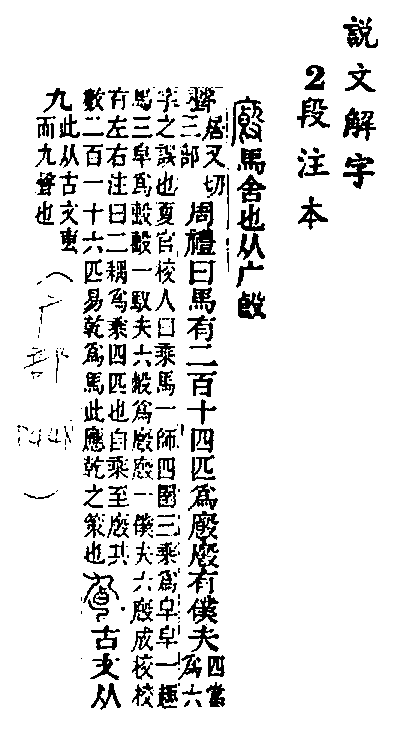 説文解字
2段注本
廄馬舍也从广㲃
聲居又切三部周禮曰馬有二百十四匹爲廄廄有僕夫四當爲六
字之誤也夏官校人曰乘馬一師四圉三乘爲皁皁一趣
馬三皁爲毄毄一馭夫六毄爲廄廄一僕夫六廄成校校
有左右注曰二耦爲乘四匹也自乘至廄其
數二百一十六匹易乾爲馬此應乾之策也
古文从
九此从古文叀而九聲也
(广部 P448)